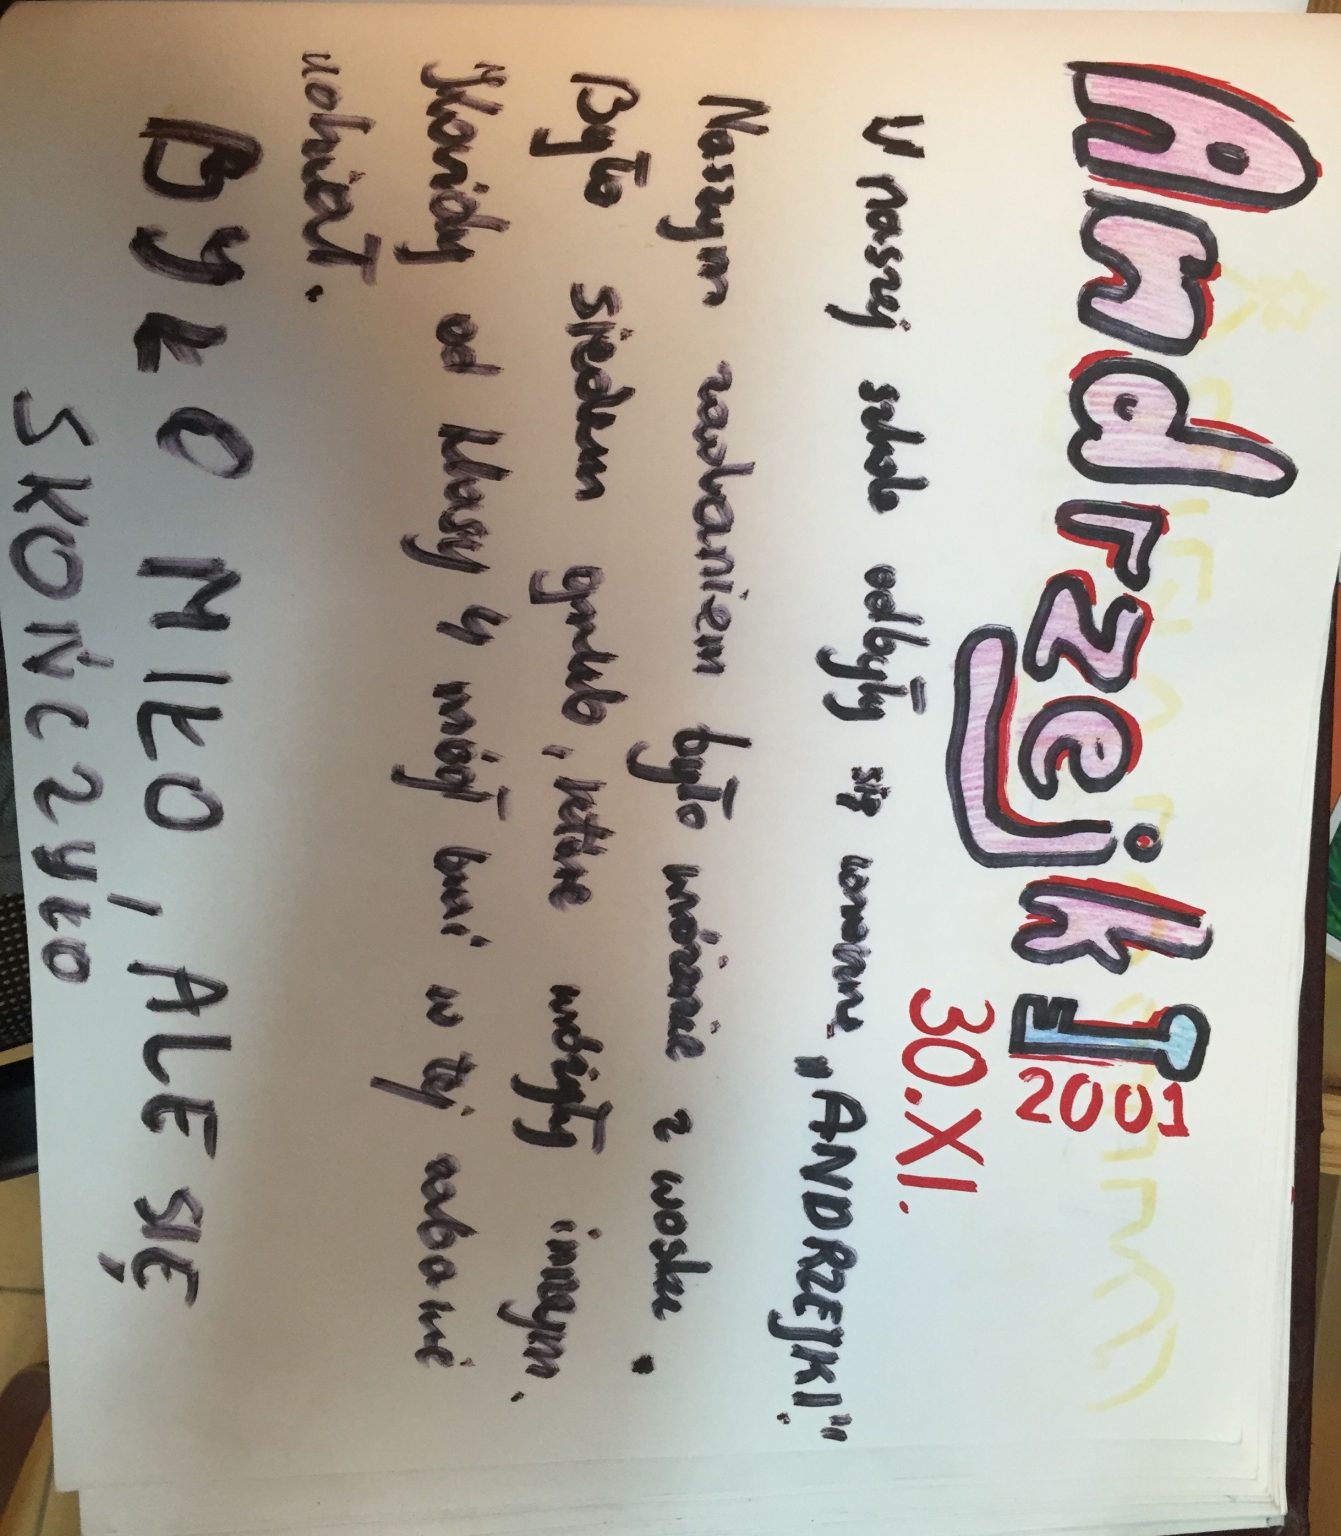 AndrzejkI 2001
30.XI.
U naszej szkole odbyły się „ANDRZEJKI."
Naszym zadaniem było z wosku.
Było siedem które wróżyły innym.
od klasy 4 mógł w tej
udział.
BYŁO MIŁO, ALE SIĘ
SKOŃCZYŁO